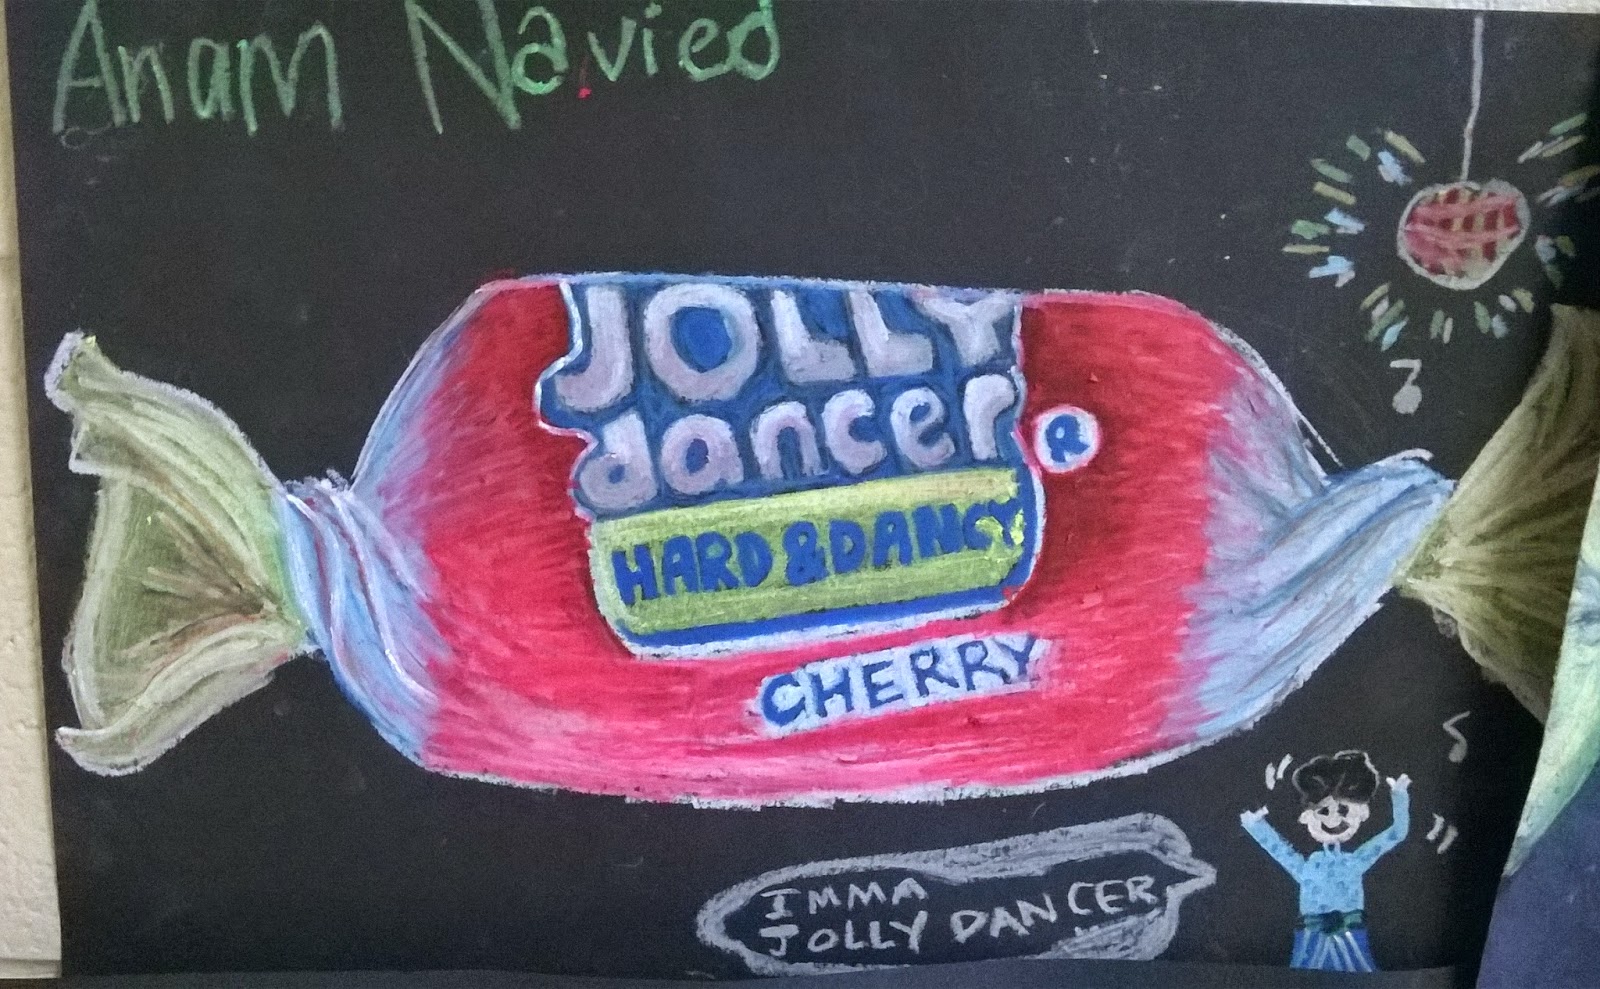 Anam Navied
JOLLY
dancer
R
HARD & DANCY
CHERRY
IMMA
JOLLY DANCER